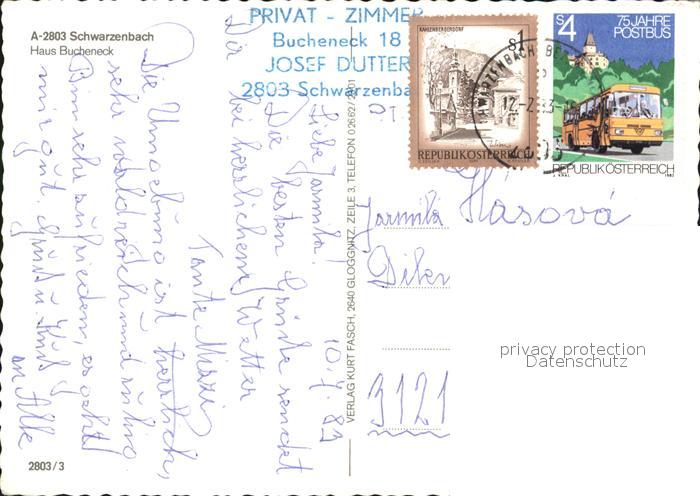 A-2803 Schwarzenbach
Haus Bucheneck
PRIVAT - ZIMMER
Bucheneck 18
JOSEF DUTTER
2803 Schwarzenba
KAHLENBERGERDORF
S1
REPUBLIK ÖSTERREICH
S4
75 JAHRE
POSTBUS
REPUBLIK ÖSTERREICH
10.7. 83
Liebe Jarmila!
Die besten Grüße sendet
Dir bei herrlichem Wetter
Tante Mizzi
Die Umgebung ist herrlich,
sehr waldreich und ruhig.
Bin sehr zufrieden, es geht
mir gut. Gruß u. Kuß
an Alle
VERLAG KURT FASCH, 2640 GLOGGNITZ, ZEILE 3, TELEFON 02662/
Jarmila Hasová
3121
privacy protection
Datenschutz
2803/3